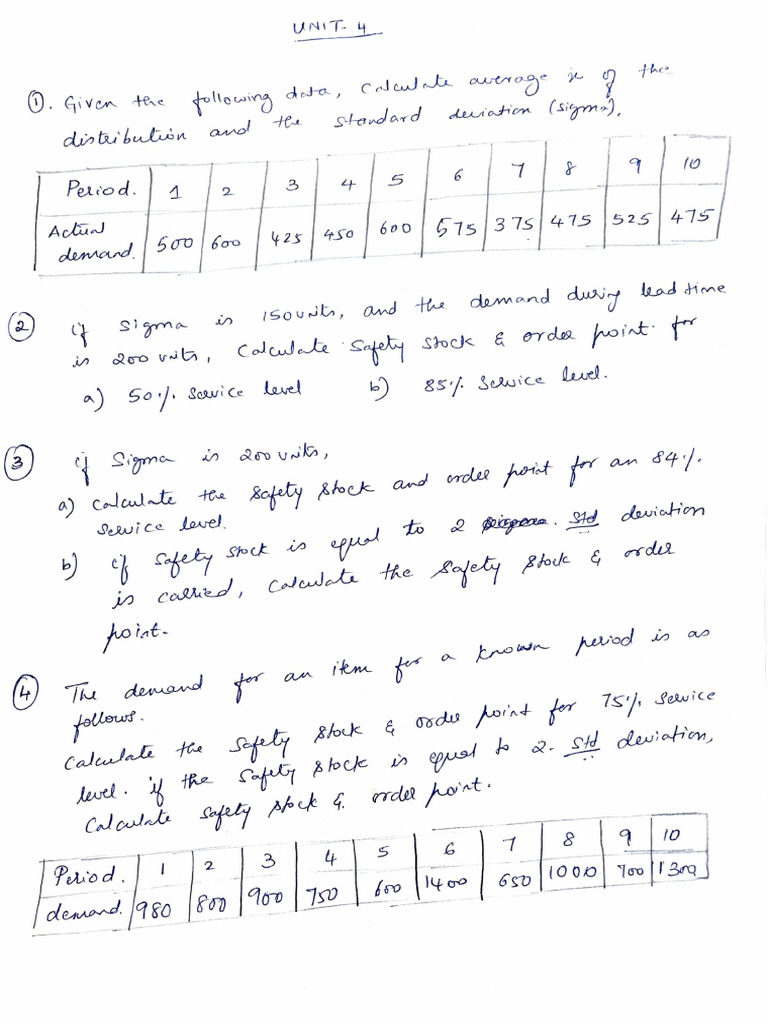 UNIT-4
①. Given the following data, calculate average x of the
distribution and the standard deviation (sigma).
Period. 1 2 3 4 5 6 7 8 9 10
Actual demand. 500 600 425 450 600 575 375 475 525 475
② if sigma is 150 units, and the demand during lead time
is 200 units, calculate safety stock & order point for
a) 50% service level b) 85% service level.
③ if sigma is 200 units,
a) calculate the safety stock and order point for an 84%
service level.
b) if safety stock is equal to 2 std deviation
is carried, calculate the safety stock & order
point.
④ The demand for an item for a known period is as
follows.
Calculate the safety stock & order point for 75% service
level. if the safety stock is equal to 2. std deviation,
calculate safety stock & order point.
Period. 1 2 3 4 5 6 7 8 9 10
demand. 980 800 900 750 600 1400 650 1000 700 1300